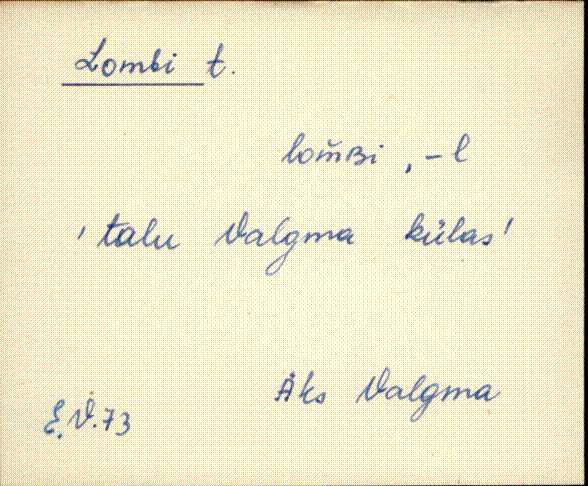 Lombi t.
lom̆ʙi, -l
'talu Valgma külas'
Äks Valgma
E.V.73